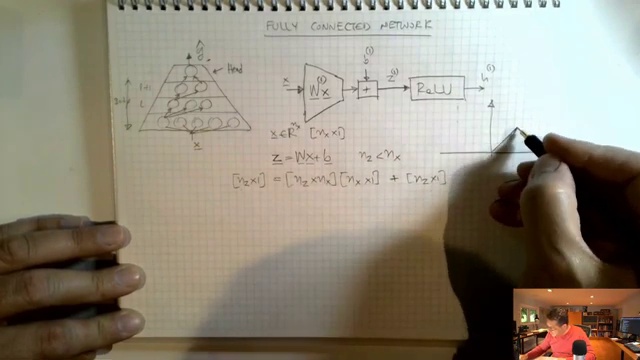 FULLY CONNECTED NETWORK
ŷ
Head
L+1
L
x
x
W x^(1)
b^(1)
+
z^(1)
ReLU
h^(1)
x ∈ R^nx [nx×1]
z = Wx + b nz < nx
[nz×1] = [nz×nx][nx×1] + [nz×1]